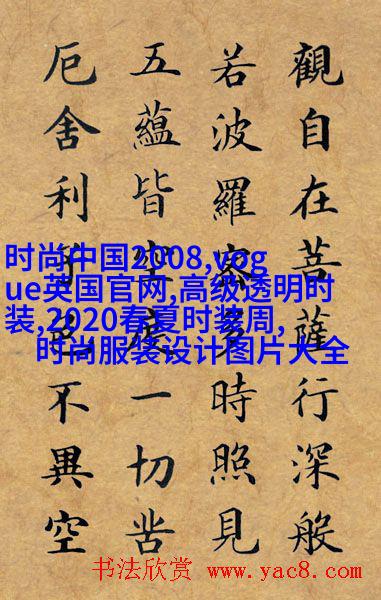 觀自在菩薩行深般
若波羅蜜多時照見
五蘊皆空度一切苦
厄舍利子色不異空
时尚中国2008,vog
ue英国官网,高级透明时
装,2020春夏时装周,
时尚服装设计图片大全
书法欣赏 www.yac8.com